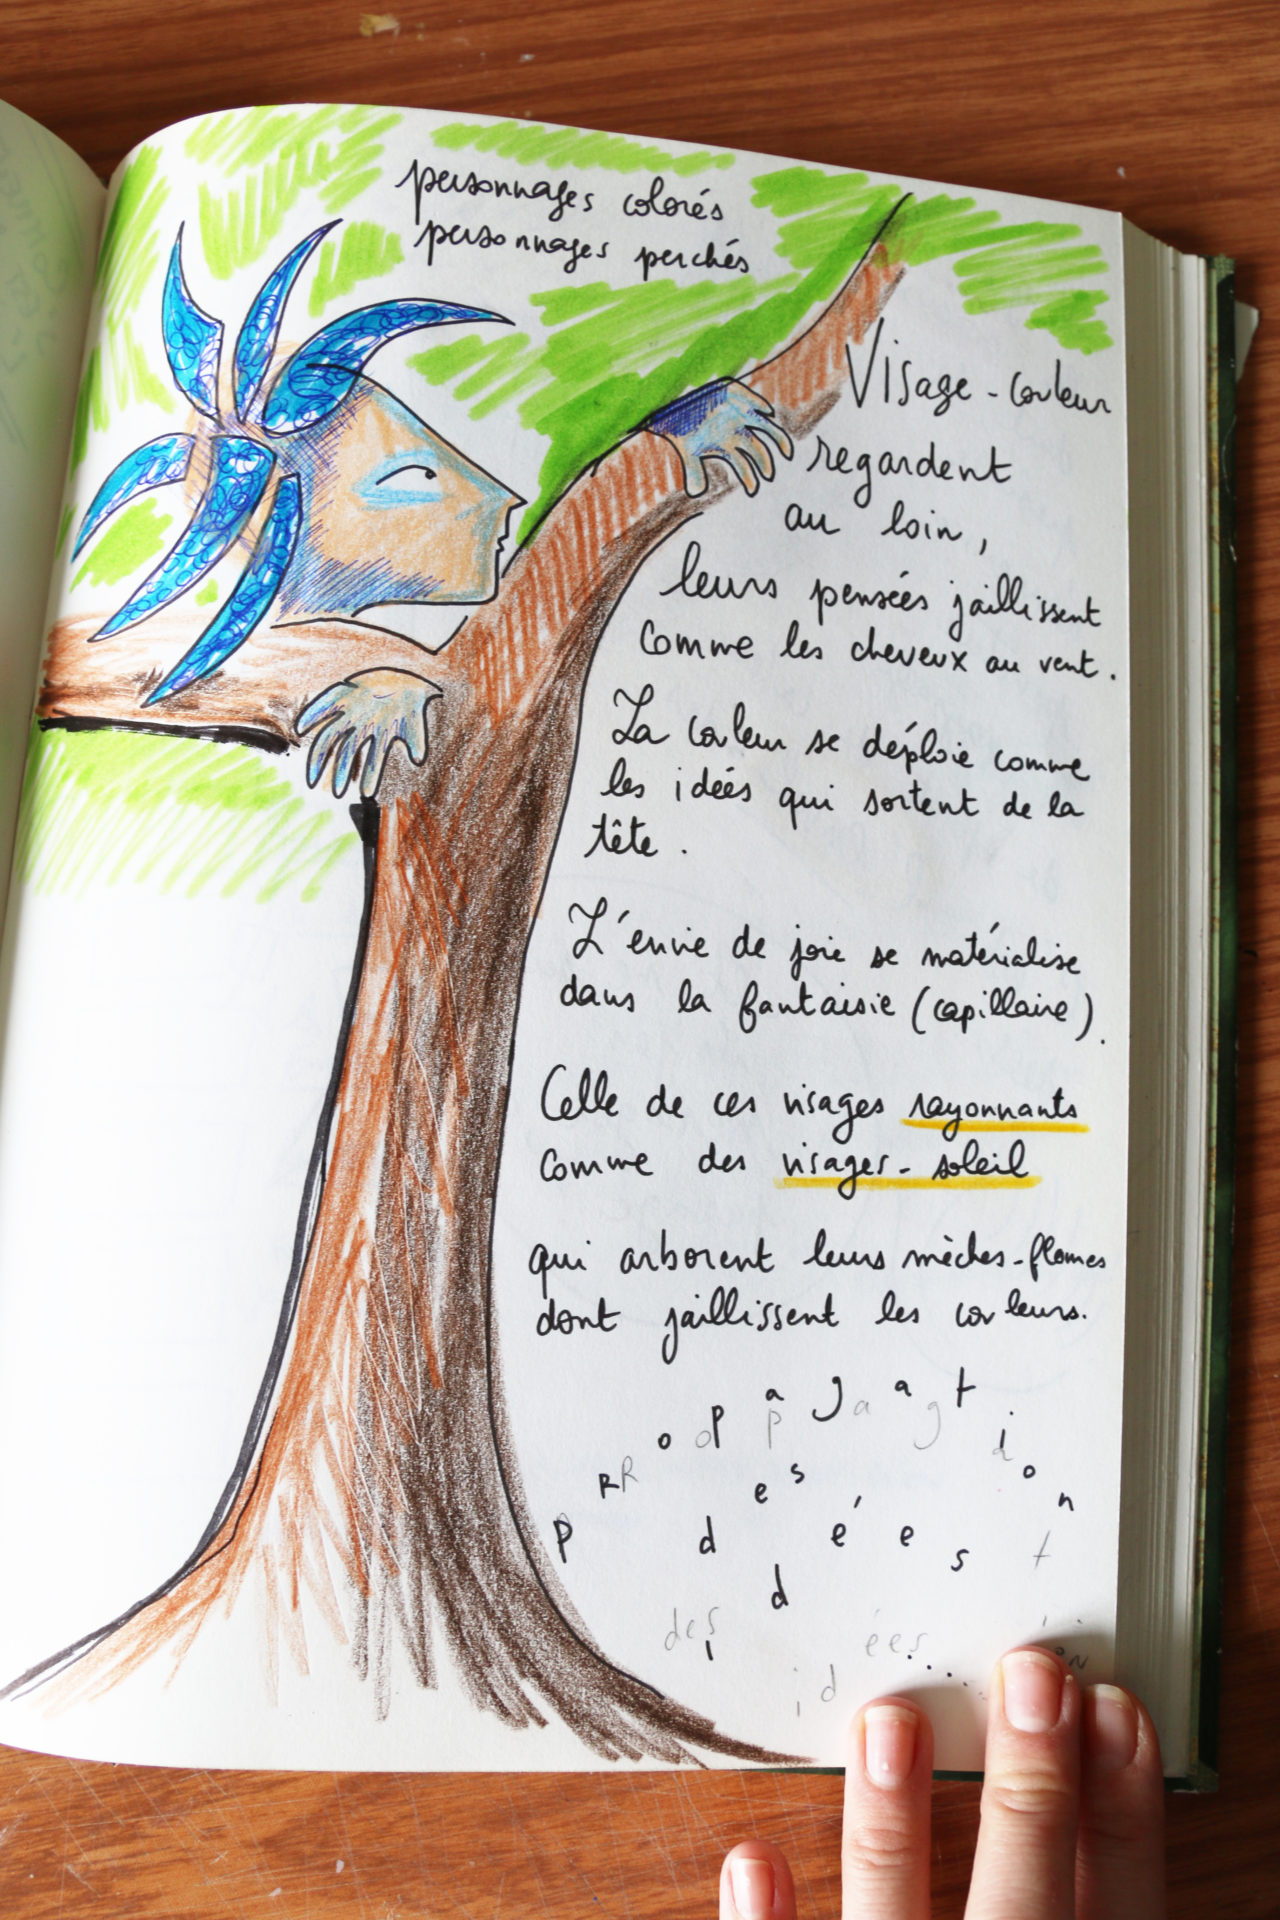 personnages colorés
personnages perchés
Visage-couleur
regardent
au loin,
leurs pensées jaillissent
comme les cheveux au vent.
La couleur se déploie comme
les idées qui sortent de la
tête.
L'envie de joie se matérialise
dans la fantaisie (capillaire).
Celle de ces visages rayonnants
comme des visages-soleil
qui arborent leurs mèches-flames
dont jaillissent les couleurs.
PRopagation
des
idées...